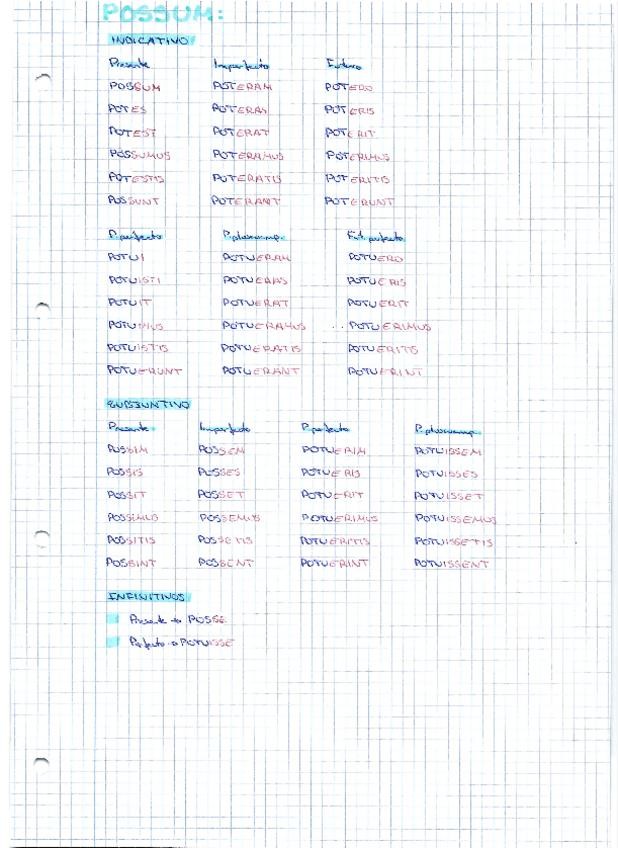 POSSUM:
INDICATIVO
Presente Imperfecto Futuro
POSSUM POTERAM POTERO
POTES POTERAS POTERIS
POTEST POTERAT POTERIT
POSSUMUS POTERAMUS POTERIMUS
POTESTIS POTERATIS POTERITIS
POSSUNT POTERANT POTERUNT
P.perfecto P.pluscuamp. Fut.perfecto
POTUI POTUERAM POTUERO
POTUISTI POTUERAS POTUERIS
POTUIT POTUERAT POTUERIT
POTUIMUS POTUERAMUS POTUERIMUS
POTUISTIS POTUERATIS POTUERITIS
POTUERUNT POTUERANT POTUERINT
SUBJUNTIVO
Presente Imperfecto P.perfecto P.pluscuamp.
POSSIM POSSEM POTUERIM POTUISSEM
POSSIS POSSES POTUERIS POTUISSES
POSSIT POSSET POTUERIT POTUISSET
POSSIMUS POSSEMUS POTUERIMUS POTUISSEMUS
POSSITIS POSSETIS POTUERITIS POTUISSETIS
POSSINT POSSENT POTUERINT POTUISSENT
INFINITIVOS
Presente → POSSE
Perfecto → POTUISSE